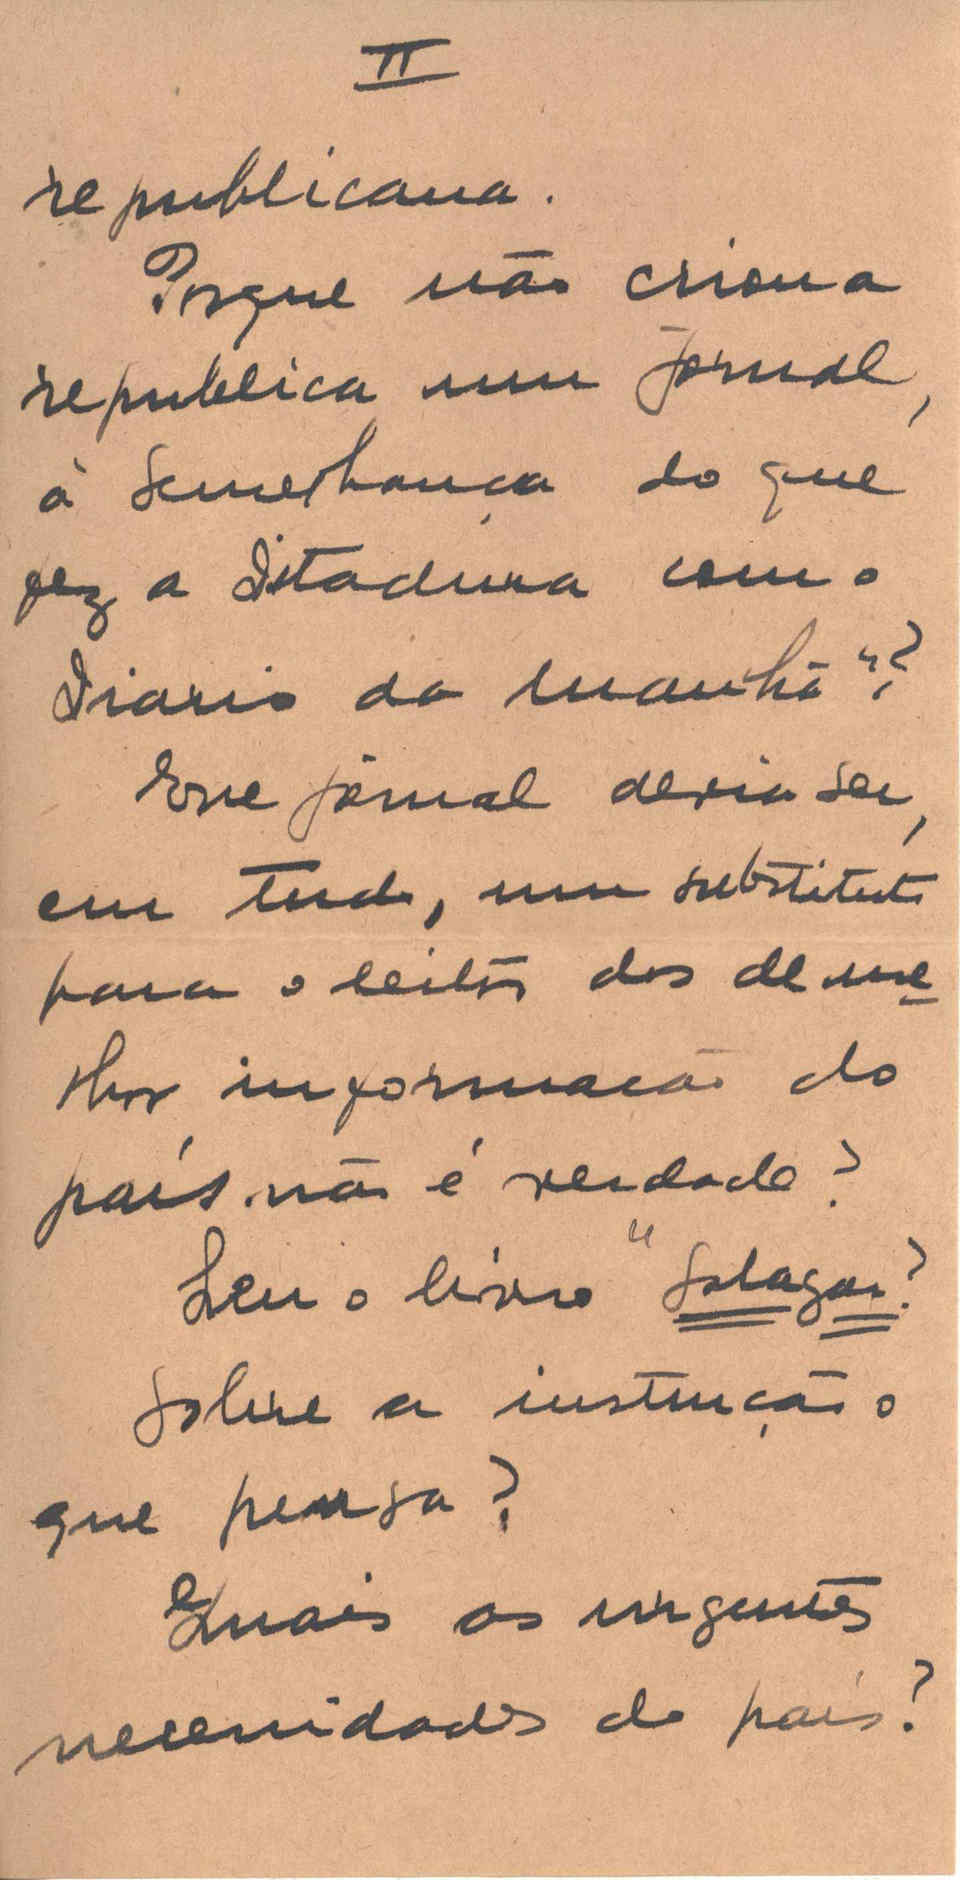 II
republicana.
Porque não criou a
republica um jornal,
à semelhança do que
fez a Ditadura com o
Diario da Manhã"?
Esse jornal devia ser,
em tudo, um substituto
para o leitor dos de me
lhor informação do
país. não é verdade?
Leu o livro "Salazar?
Sobre a instrução o
que pensa?
Quais as urgentes
necessidades do país?